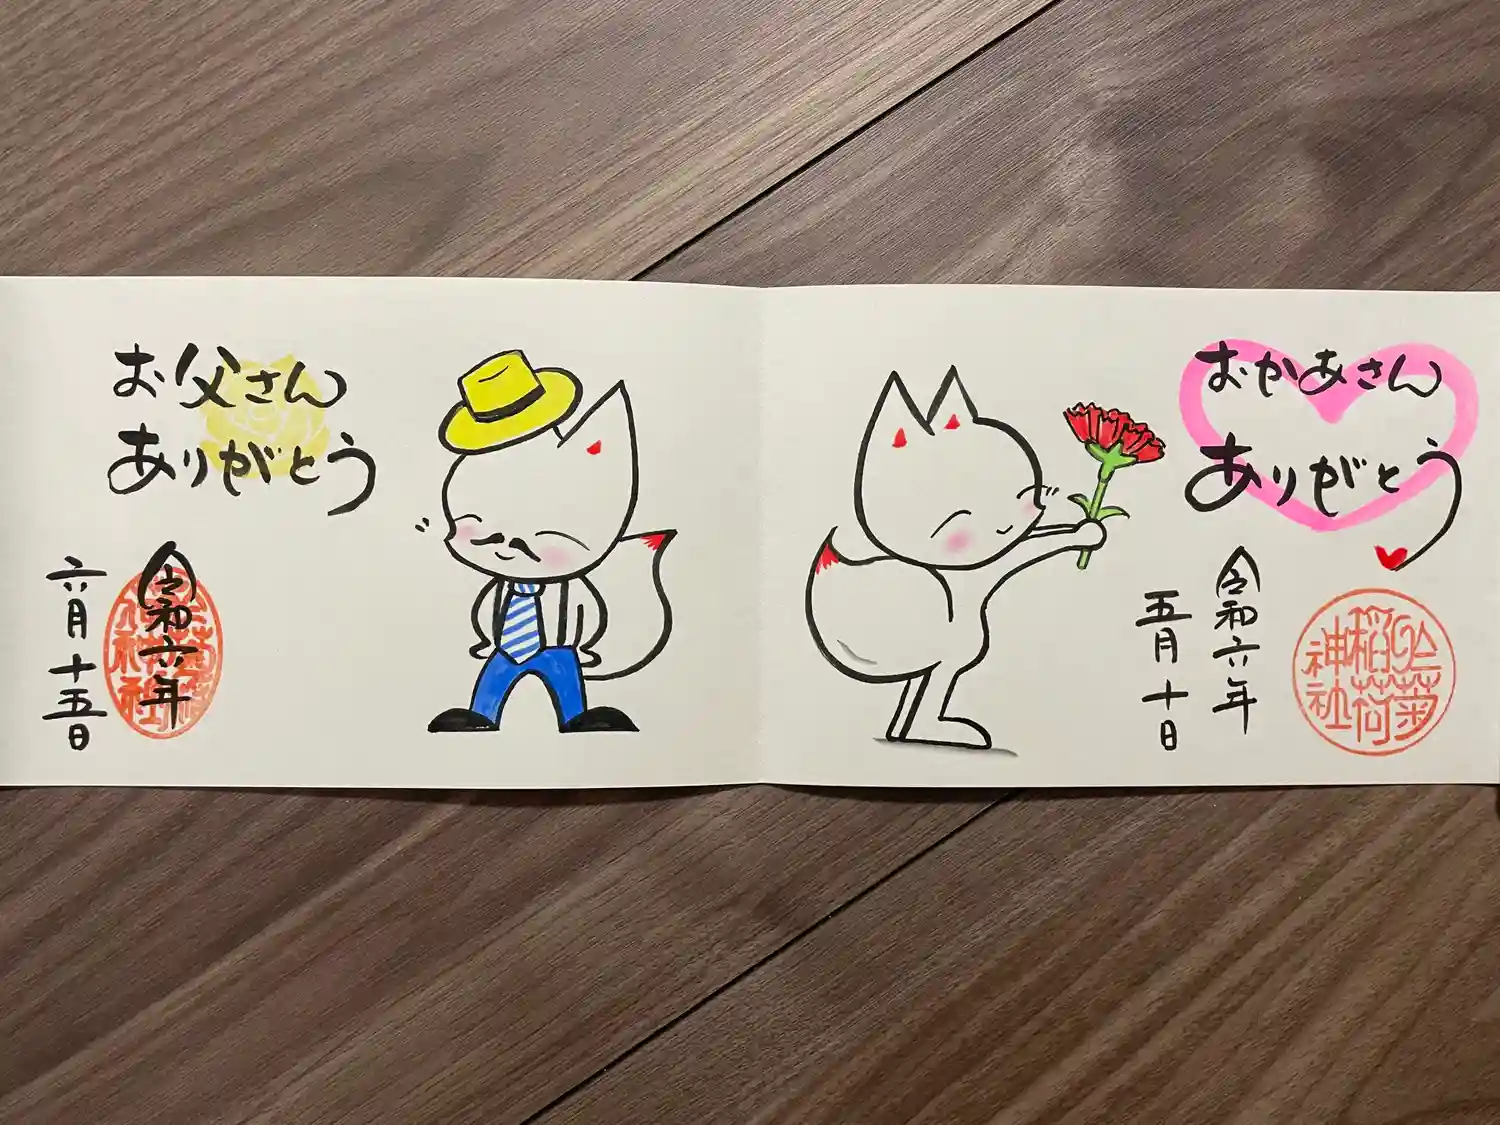 おかあさん
ありがとう
令和六年
五月十日
お父さん
ありがとう
令和六年
六月十五日